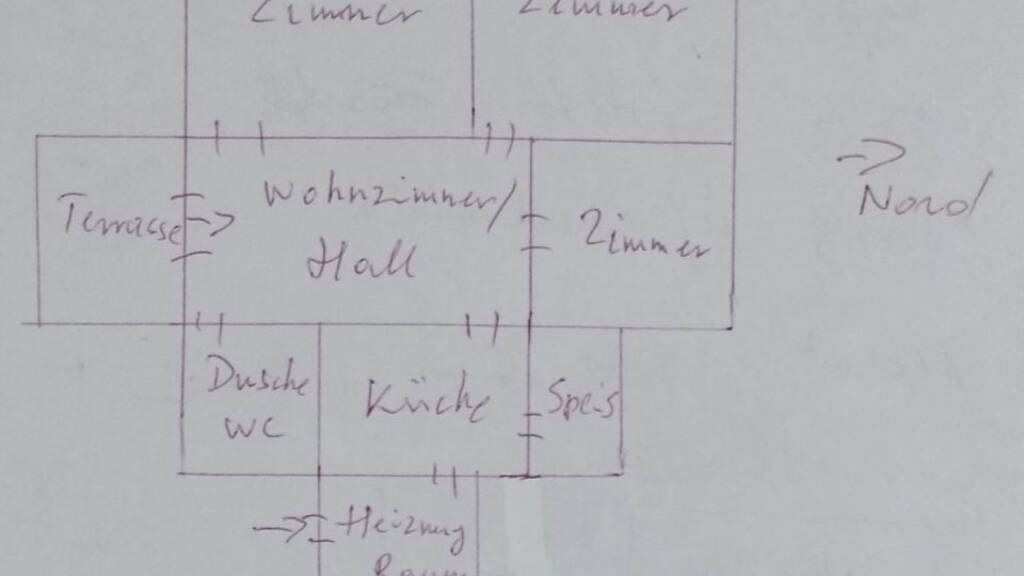 Zimmer
Zimmer
Terrasse
Wohnzimmer/
Hall
Zimmer
Nord
Dusche
WC
Küche
Speis
Heizung
Raum